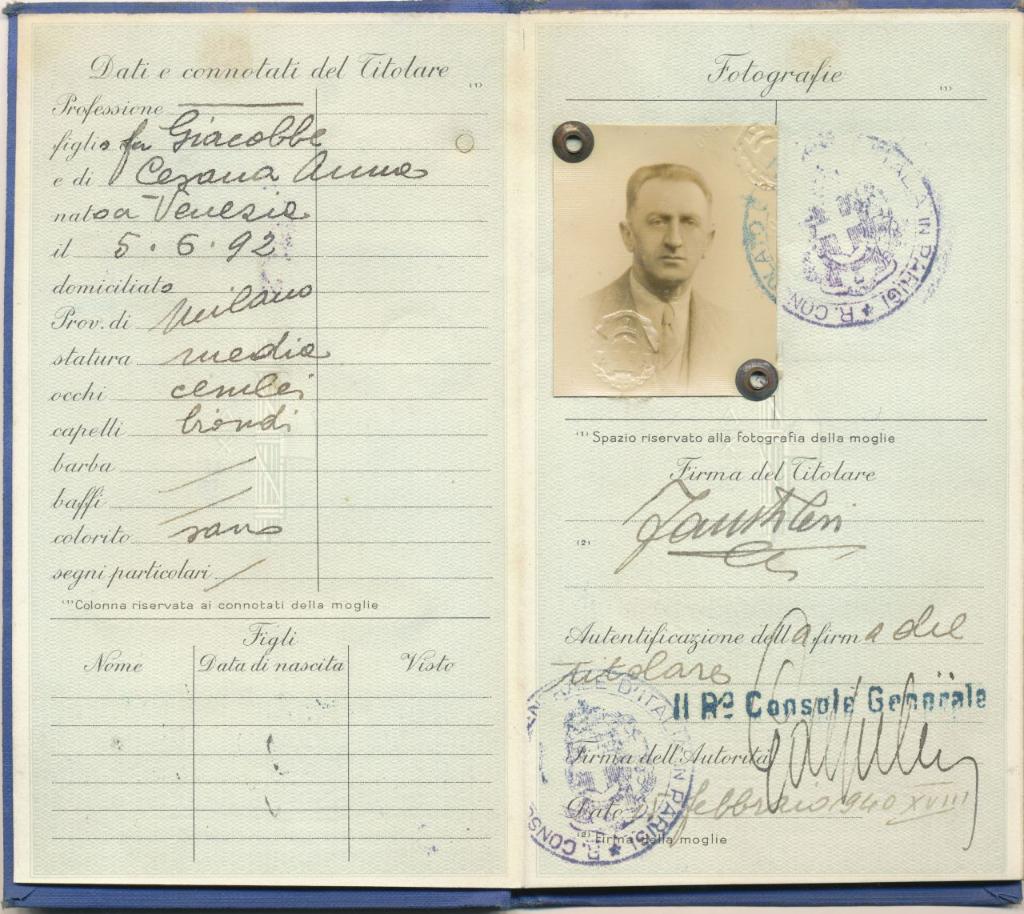 Dati e connotati del Titolare
(1)
Professione
figlio fu Giacobbe
e di Cesana Anna
nato a Venezia
il 5.6.92
domiciliato
Prov. di Milano
statura media
occhi cerulei
capelli biondi
barba
baffi
colorito sano
segni particolari
(1) Colonna riservata ai connotati della moglie
Figli
Nome Data di nascita Visto
Fotografie
(1)
R. CONSOLATO GENERALE D'ITALIA IN PARIGI
(1) Spazio riservato alla fotografia della moglie
Firma del Titolare
(2)
Autentificazione della firma del
titolare
Il Rº Console Generale
Firma dell'Autorità
Data febbraio 1940 XVIII
(2) Firma della moglie
R. CONSOLATO GENERALE D'ITALIA IN PARIGI